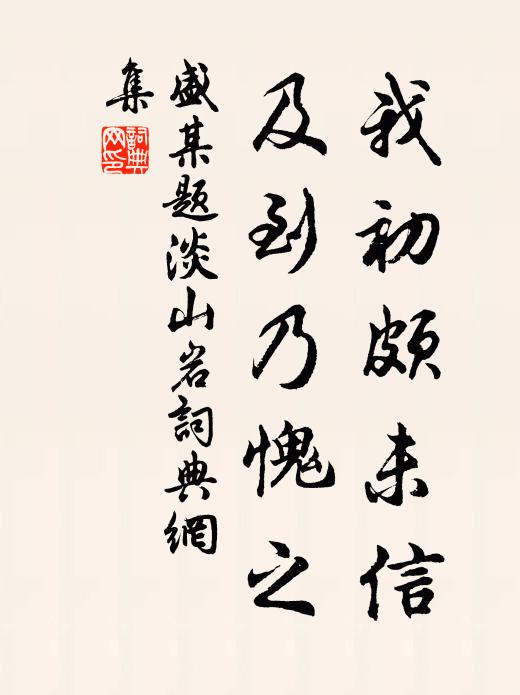 我初頗未信
及到乃愧之
盛某題淡山岩詞典網
集
詞典網印